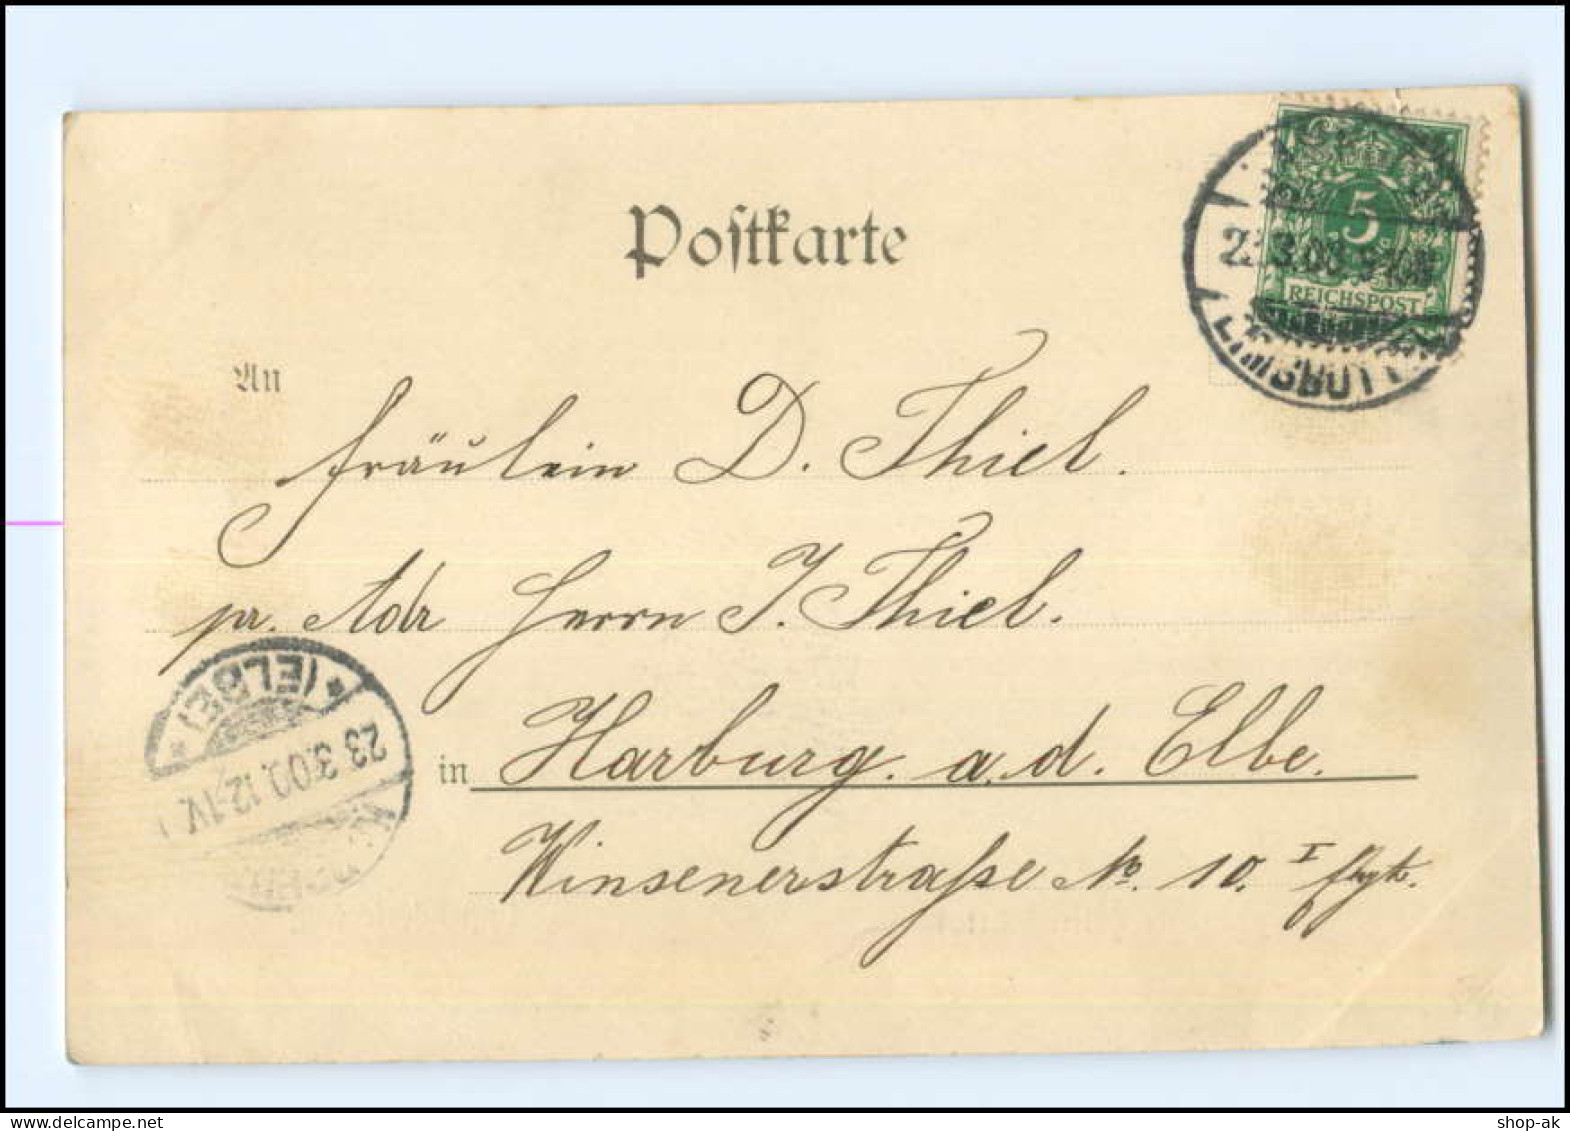 Postkarte
5
REICHSPOST
EIMSBÜTT
An
Fräulein D. Thiel.
pr. Adr Herrn J. Thiel.
in Harburg. a. d. Elbe.
Winsenerstraße No. 10. I
(ELBE)
23.3.00. 12-1V.
shop-ak